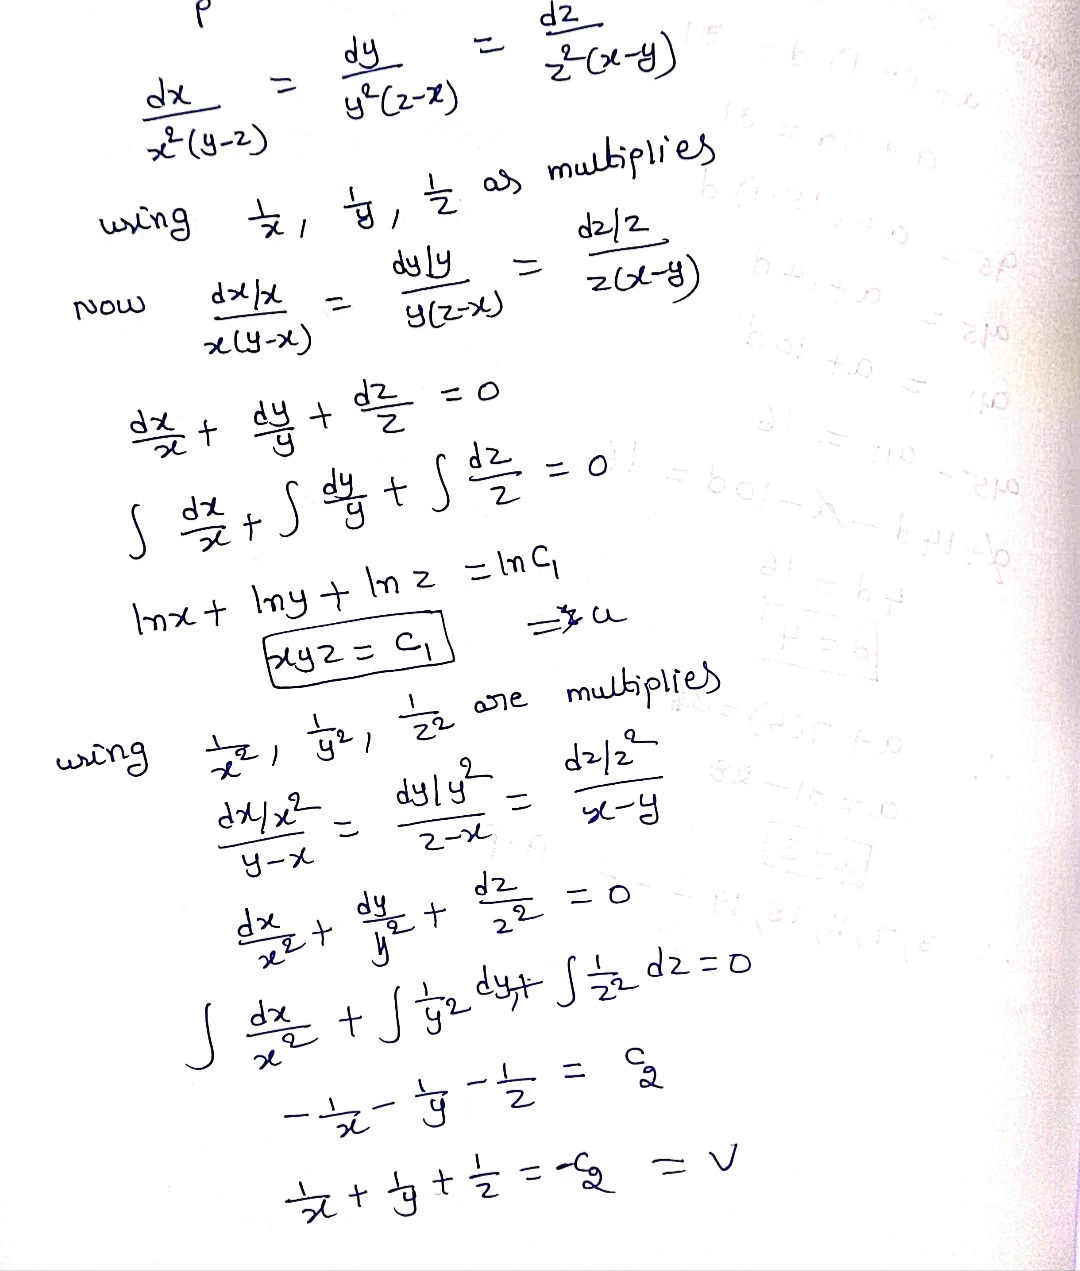 P
dx/x²(y-z) = dy/y²(z-x) = dz/z²(x-y)
using 1/x, 1/y, 1/z as multiplies
Now (dx/x)/x(y-x) = (dy/y)/y(z-x) = (dz/z)/z(x-y)
dx/x + dy/y + dz/z = 0
∫ dx/x + ∫ dy/y + ∫ dz/z = 0
lnx + lny + ln z = ln C₁
xyz = C₁ = u
using 1/x², 1/y², 1/z² are multiplies
(dx/x²)/y-x = (dy/y²)/z-x = (dz/z²)/x-y
dx/x² + dy/y² + dz/z² = 0
∫ dx/x² + ∫ 1/y² dy + ∫ 1/z² dz = 0
- 1/x - 1/y - 1/z = C₂
1/x + 1/y + 1/z = -C₂ = V